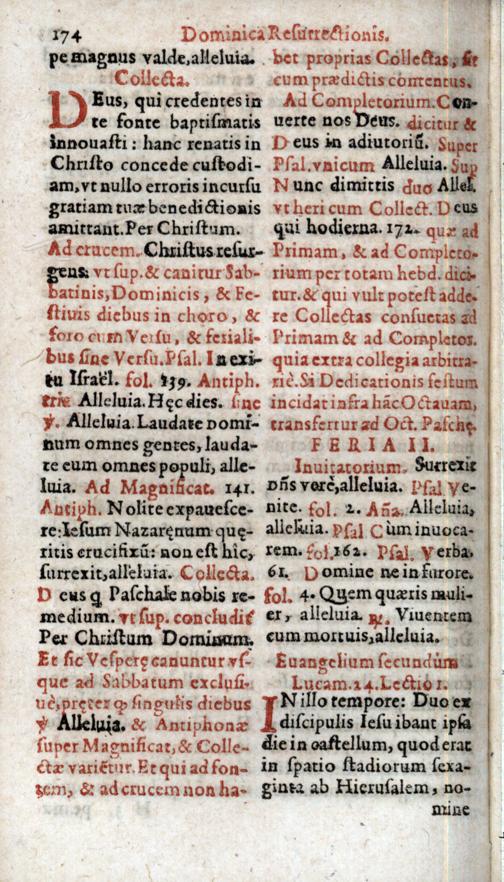 174 Dominica Resurrectionis.
pe magnus valde, alleluia.
Collecta.
DEus, qui credentes in
te fonte baptismatis
innouasti : hanc renatis in
Christo concede custodi-
am, vt nullo erroris incursu
gratiam tuæ benedictionis
amittant. Per Christum.
Ad crucem. Christus resur-
gens: vt sup. & canitur Sab-
batinis, Dominicis, & Fe-
stiuis diebus in choro, &
foro cum Versu, & feriali-
bus sine Versu. Psal. In exi-
tu Israël. fol. 139. Antiph.
trie Alleluia. Hęc dies. sine
℣. Alleluia. Laudate domi-
num omnes gentes, lauda-
te eum omnes populi, alle-
luia. Ad Magnificat. 141.
Antiph. Nolite expauesce-
re: Iesum Nazarenum quę-
ritis crucifixū: non est hîc,
surrexit, alleluia. Collecta.
D eus q Paschale nobis re-
medium. vt sup. concludit
Per Christum Dominum.
Et sic Vesperę canuntur vs-
que ad Sabbatum exclusi-
uè, pręter ꝙ singulis diebus
℣ Alleluia. & Antiphonæ
super Magnificat, & Colle-
ctæ variētur. Et qui ad fon-
tem, & ad crucem non ha-
bet proprias Collectas, sit
cum prædictis contentus.
Ad Completorium. Con-
uerte nos Deus. dicitur &
D eus in adiutoriū. Super
Psal. vnicum Alleluia. Sup
N unc dimittis duo Allel.
vt heri cum Collect. D eus
qui hodierna. 172. quæ ad
Primam, & ad Completo-
rium per totam hebd. dici-
tur. & qui vult potest adde-
re Collectas consuetas ad
Primam & ad Completor.
quia extra collegia arbitra-
riè. Si Dedicationis festum
incidat infra hāc Octauam,
transfertur ad Oct. Paschę.
FERIA II.
Inuitatorium. Surrexit
Dñs verè, alleluia. Psal Ve-
nite. fol. 2. Aña. Alleluia,
alleluia. Psal Cùm inuoca-
rem. fol. 162. Psal. Verba.
61. D omine ne in furore.
fol. 4. Quem quæris muli-
er, alleluia. ℟. Viuentem
cum mortuis, alleluia.
Euangelium secundùm
Lucam. 24. Lectio 1.
IN illo tempore: Duo ex
discipulis Iesu ibant ipsa
die in castellum, quod erat
in spatio stadiorum sexa-
ginta ab Hierusalem, no-
mine